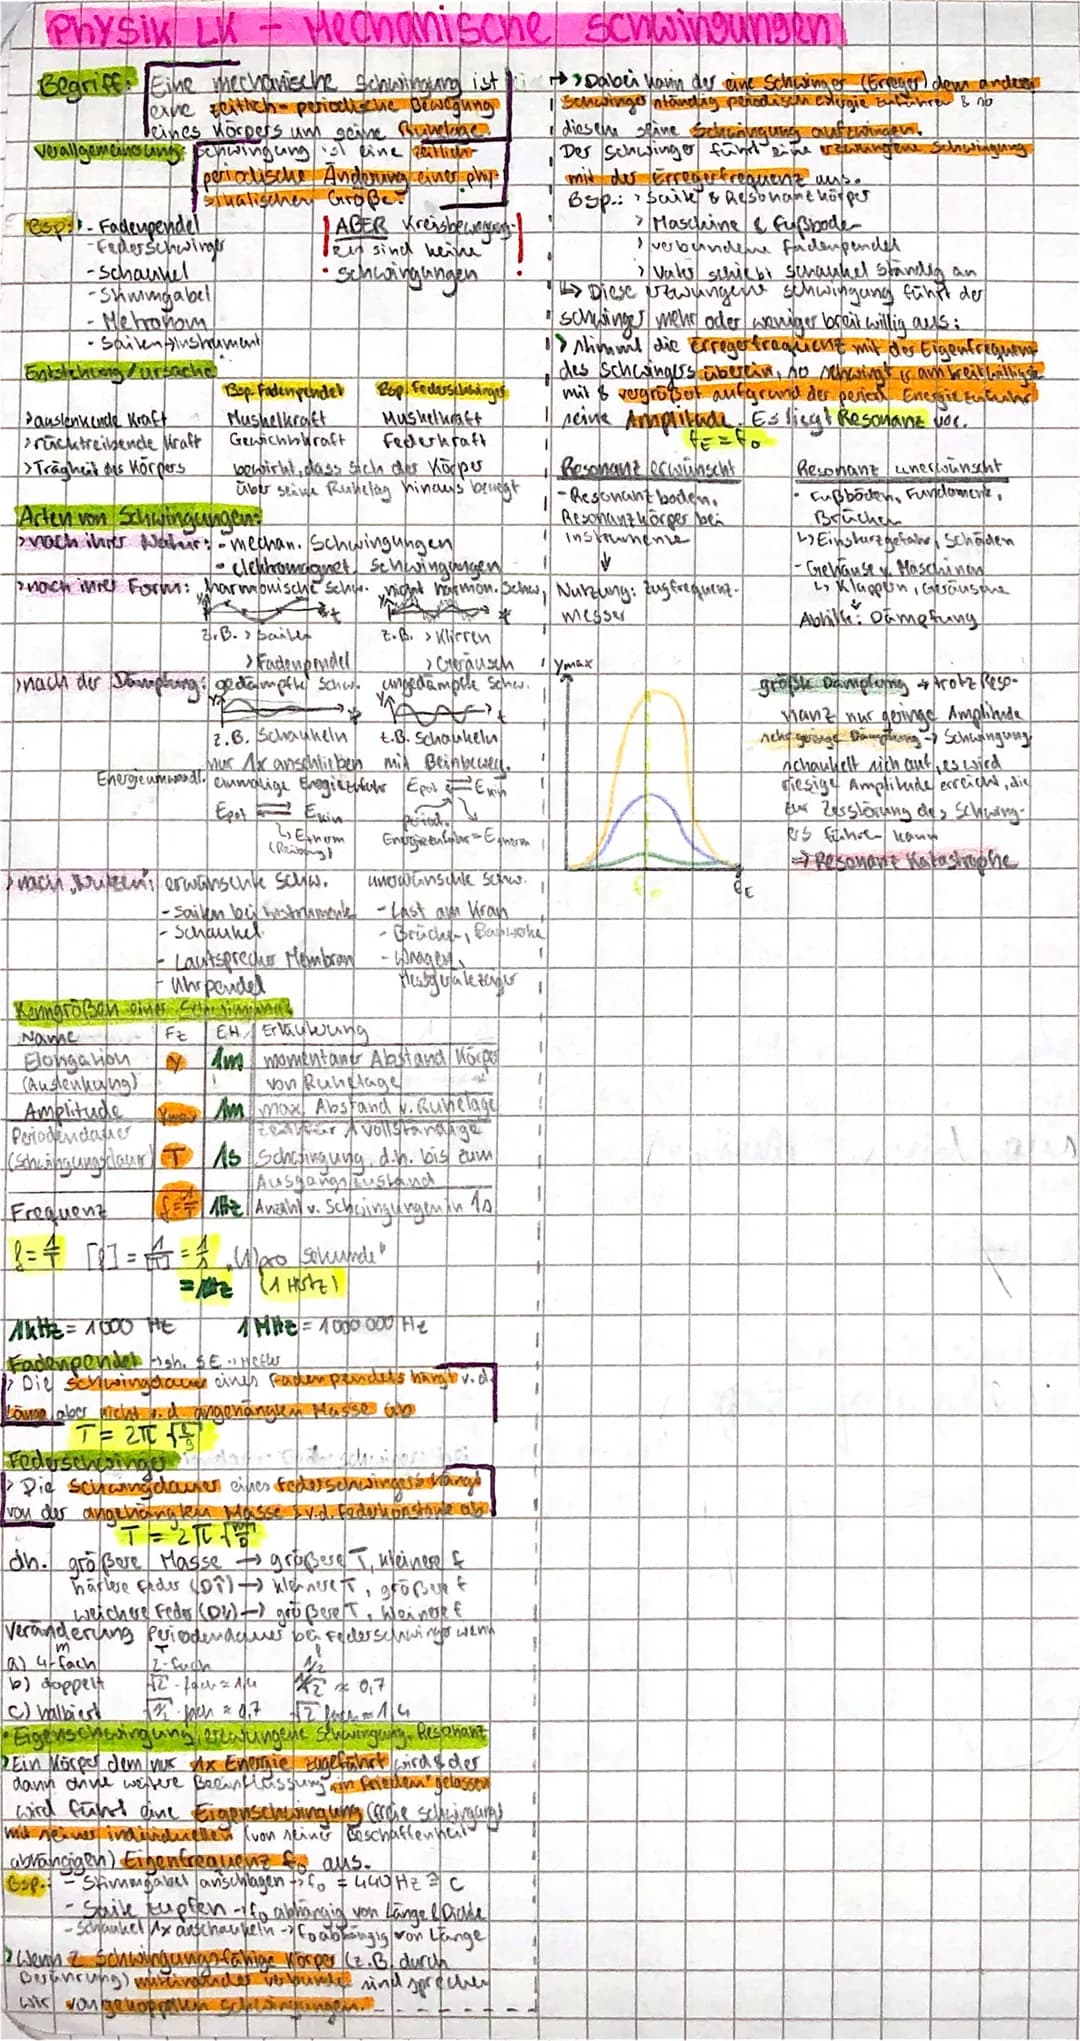 Physik LK – Mechanische Schwingungen
Begriff: Eine mechanische Schwingung ist
eine zeitlich-periodische Bewegung
eines Körpers um seine Ruhelage.
Verallgemeinerung: Schwingung ist eine zeitlich-
periodische Änderung einer phy-
sikalischen Größe.
Bsp.: - Fadenpendel
- Federschwinger
- Schaukel
- Stimmgabel
- Metronom
- Saiteninstrument
! ABER Kreisbewegung-
en sind keine
Schwingungen !
Entstehung/Ursache
Bsp. Fadenpendel Bsp. Federschwinger
> auslenkende Kraft Muskelkraft Muskelkraft
> rücktreibende Kraft Gewichtskraft Federkraft
> Trägheit des Körpers bewirkt, dass sich der Körper
über seine Ruhelag hinaus bewegt
Arten von Schwingungen:
> nach ihrer Natur: - mechan. Schwingungen
- elektromagnet. Schwingungen
> nach ihrer Form: harmonische Schw. nicht harmon. Schw.
y t y t
z.B. > Saiten z.B. > Klirren
> Fadenpendel > Geräusch
> nach der Dämpfung: gedämpfte Schw. ungedämpfte Schw.
y t y t
z.B. Schaukeln z.B. Schaukeln
nur 1x anschieben mit Beinbeweg.
Energieumwandl. einmalige Energiezufuhr Epot ⇌ Ekin
Epot ⇌ Ekin period.
↳ Etherm Energiezufuhr = Etherm
(Reibung)
> nach „Nutzen": erwünschte Schw. unerwünschte Schw.
- Saiten bei Instrumente - Last am Kran
- Schaukel - Brücken, Bauwerke
- Lautsprecher Membran - Wagen,
- Uhrpendel Messgerätezeiger
Kenngrößen einer Schwingung
Name Fz EH Erläuterung
Elongation y 1m momentaner Abstand Körper
(Auslenkung) von Ruhelage
Amplitude ymax 1m max. Abstand v. Ruhelage
Periodendauer Zeit für 1 vollständige
(Schwingungsdauer) T 1s Schwingung, d.h. bis zum
Ausgangszustand
Frequenz f=1/T 1Hz Anzahl v. Schwingungen in 1s
f = 1/T [f] = 1/[T] = 1/s „1 pro Sekunde"
= 1Hz (1 Hertz)
1kHz = 1000 Hz 1 MHz = 1000 000 Hz
Fadenpendel → sh. SE - Hefter
> Die Schwingdauer eines Fadenpendels hängt v. d.
Länge aber nicht v. d. angehängten Masse ab
T = 2π √(l/g)
Federschwinger
> Die Schwingdauer eines Federschwingers hängt
von der angehängten Masse & v. d. Federkonstante ab.
T = 2π √(m/D)
dh. größere Masse → größere T, kleinere f
härtere Feder (D↑) → kleinere T, größere f
weichere Feder (D↓) → größere T, kleinere f
Veränderung Periodendauer bei Federschwinger wenn
m T f
a) 4-fach 2-fach 1/2
b) doppelt √2-fach ≈ 1,4 1/√2 ≈ 0,7
c) halbiert √½-fach ≈ 0,7 √2 fach ≈ 1,4
Eigenschwingung, erzwungene Schwingung, Resonanz
> Ein Körper dem nur 1x Energie zugeführt wird & der
dann ohne weitere Beeinflussung „in Frieden" gelassen
wird führt eine Eigenschwingung (freie Schwingung)
mit seiner individuellen (von seiner Beschaffenheit
abhängigen) Eigenfrequenz f₀ aus.
Bsp.: - Stimmgabel anschlagen → f₀ = 440Hz ≙ C
- Saite zupfen → f₀ abhängig von Länge & Dicke
- Schaukel 1x anschaukeln → f₀ abhängig von Länge
> Wenn 2 Schwingungsfähige Körper (z.B. durch
Berührung) miteinander verbunden sind sprechen
wir von gekoppelten Schwingungen.
→ > Dabei kann der eine Schwinger (Erreger) dem anderen
Schwinger ständig periodisch Energie zuführen & so
diesem seine Schwingung aufzwingen.
Der Schwinger führt eine erzwungene Schwingung
mit der Erregerfrequenz aus.
Bsp.: > Saite & Resonanzkörper
> Maschine & Fußboden
> verbundene Fadenpendel
> Vater schiebt Schaukel ständig an
↳ Diese erzwungene Schwingung führt der
Schwinger mehr oder weniger breitwillig aus:
> stimmt die Erregerfrequenz mit der Eigenfrequenz
des Schwingers überein, so schwingt er am breitwilligste
mit & vergrößert aufgrund der period. Energiezufuhr
seine Amplitude. Es liegt Resonanz vor.
fE = f₀
Resonanz erwünscht Resonanz unerwünscht
- Resonanzboden, - Fußböden, Fundamente,
Resonanzkörper bei Brücken
Instrumente ↳ Einsturzgefahr, Schäden
↓ - Gehäuse v. Maschinen
Nutzung: Zugfrequenz- ↳ Klappern, Geräusche
messer Abhilfe: Dämpfung
ymax
f₀ fE
größte Dämpfung → trotz Reso-
nanz nur geringe Amplitude
sehr geringe Dämpfung → Schwingung
schaukelt sich auf, es wird
riesige Amplitude erreicht, die
zur Zerstörung des Schwing-
ers führen kann
⇒ Resonanz Katastrophe